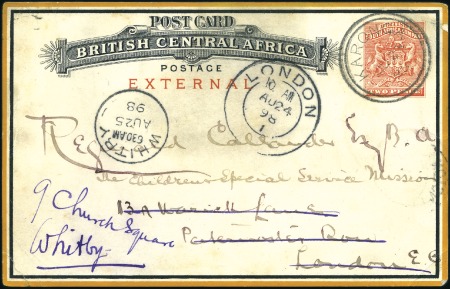 POST CARD
BRITISH CENTRAL AFRICA
POSTAGE
EXTERNAL
LONDON
10 AM
AU24
98
1
WHITBY
630AM
AU25
98
Callander Esq B.A
The Children's Special Service Mission
13A Warwick Lane
Paternoster Row
London E C
9 Church Square
Whitby